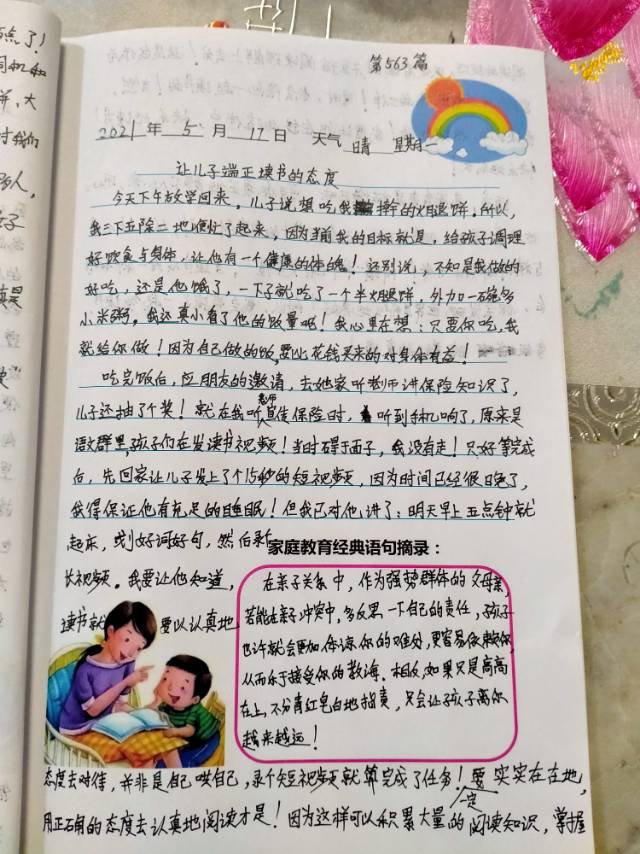 点了！
大
对我们
第563篇
2021年 5月 17日 天气 晴 星期一
让儿子端正读书的态度
今天下午放学回来。儿子说想吃我烙的火腿饼。所以，
我三下五除二地便忙了起来，因为当前我的目标就是，给孩子调理
好饮食与身体，让他有一个健康的体魄！还别说，不知是我做的
好吃，还是他饿了，一下子就吃了一个半火腿饼，外加一碗多
小米粥。我还真小看了他的饭量呢！我心里在想：只要你吃，我
就给你做！因为自己做的饭，要比花钱买来的对身体有益！
吃完饭后，应朋友的邀请，去她家听老师讲保险知识了，
儿子还抽了个奖！就在我听老师宣传保险时，听到手机响了，原来是
语文群里，孩子们在发读书视频！当时碍于面子，我没有走！只好等完成
后，先回家让儿子发上了个15秒的短视频，因为时间已经很晚了，
我得保证他有充足的睡眠！但我已对他讲了：明天早上五点钟就
起床，或划好词好句，然后录
家庭教育经典语句摘录：
长视频。我要让他知道，
读书就要以认真地
在亲子关系中，作为强势群体的父母亲，
若能在亲子冲突中，多反思一下自己的责任，孩子
也许就会更加体谅你的难处，更容易依赖你，
从而乐于接受你的教诲。相反，如果只是高高
在上，不分青红皂白地指责，只会让孩子离你
越来越远！
态度去对待，并非是自己哄自己，录个短视频就算完成了任务！要一定实实在在地，
用正确的态度去认真地阅读才是！因为这样可以积累大量的阅读知识，掌握